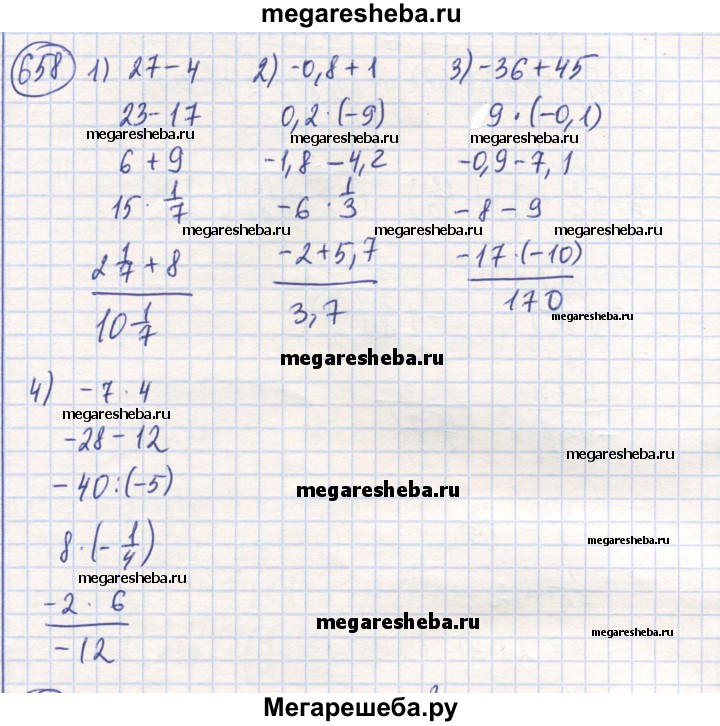 megaresheba.ru
658 1) 27 - 4 2) -0,8 + 1 3) -36 + 45
23 - 17 0,2 · (-9) 9 · (-0,1)
megaresheba.ru megaresheba.ru megaresheba.ru
6 + 9 -1,8 - 4,2 -0,9 - 7,1
15 · 1/7 -6 · 1/3 -8 - 9
megaresheba.ru megaresheba.ru megaresheba.ru
2 1/7 + 8 -2 + 5,7 -17 · (-10)
10 1/7 3,7 170
megaresheba.ru
megaresheba.ru
4) -7 · 4
megaresheba.ru
-28 - 12
megaresheba.ru
-40 : (-5)
megaresheba.ru
8 · (-1/4)
megaresheba.ru
megaresheba.ru
-2 · 6
megaresheba.ru
megaresheba.ru
-12
Мегарешеба.ру